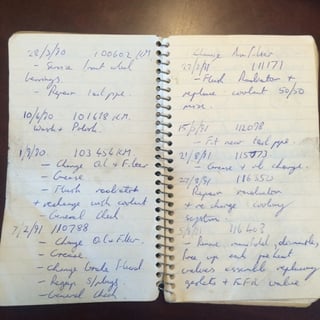 28/3/90 100602 KM
- Service front wheel
bearings.
- Repair tail pipe.
10/6/90 101678 KM.
Wash + Polish.
103456 KM
- Change Oil + Filter
- Grease
- Flush radiator
+ recharge with coolant
- General Check
7/2/91 110788
- Change Oil + Filter.
- Grease.
- Change brake fluid
- Regap S/plugs.
- General Check.
Change
111171
- Flush Radiator +
replace coolant 50/50
mix.
112098
- Fit new tail pipe.
115773
- Grease + oil change.
116350
Repair radiator
+ re charge cooling
system.
116403
- manifold, dismantle,
free up heat
valves assemble replacing
gaskets +